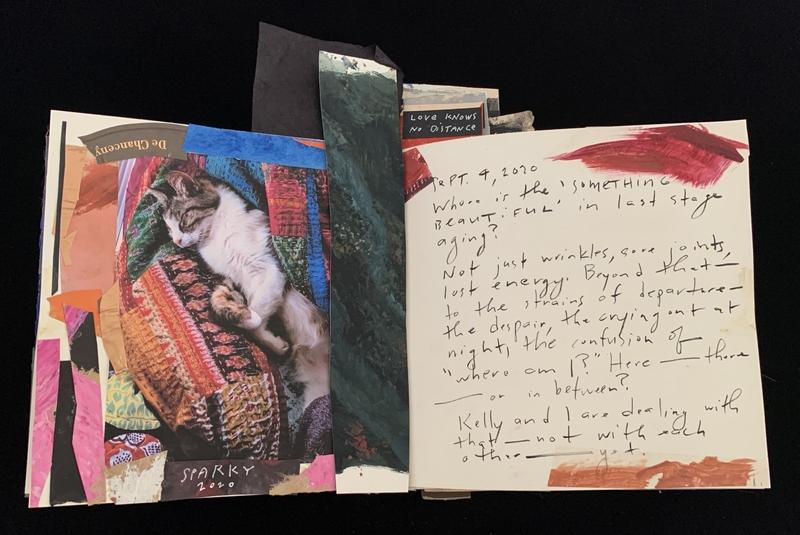 De Chanceny
SPARKY
2020
LOVE KNOWS
NO DISTANCE
SEPT. 4, 2020
Where is the 'SOMETHING
BEAUTIFUL' in last stage
aging?
Not just wrinkles, sore joints,
lost energy. Beyond that —
to the strains of departure —
the despair, the crying out at
night, the confusion of
"where am I?" Here — there
— or in between?
Kelly and I are dealing with
that — not with each
other — yet.